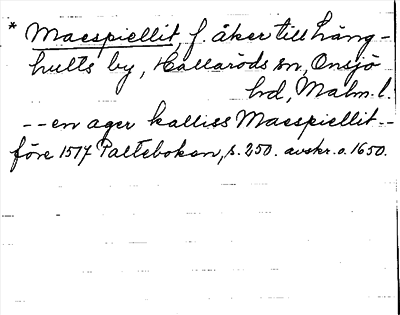 * Maespiellit, f. åker till Häng-
hults by, Hallaröds sn, Onsjö
hd, Malm. l.
-- en ager kalliss Maespiellit --
före 1517 Paltebokan, s. 250. avskr. o. 1650.